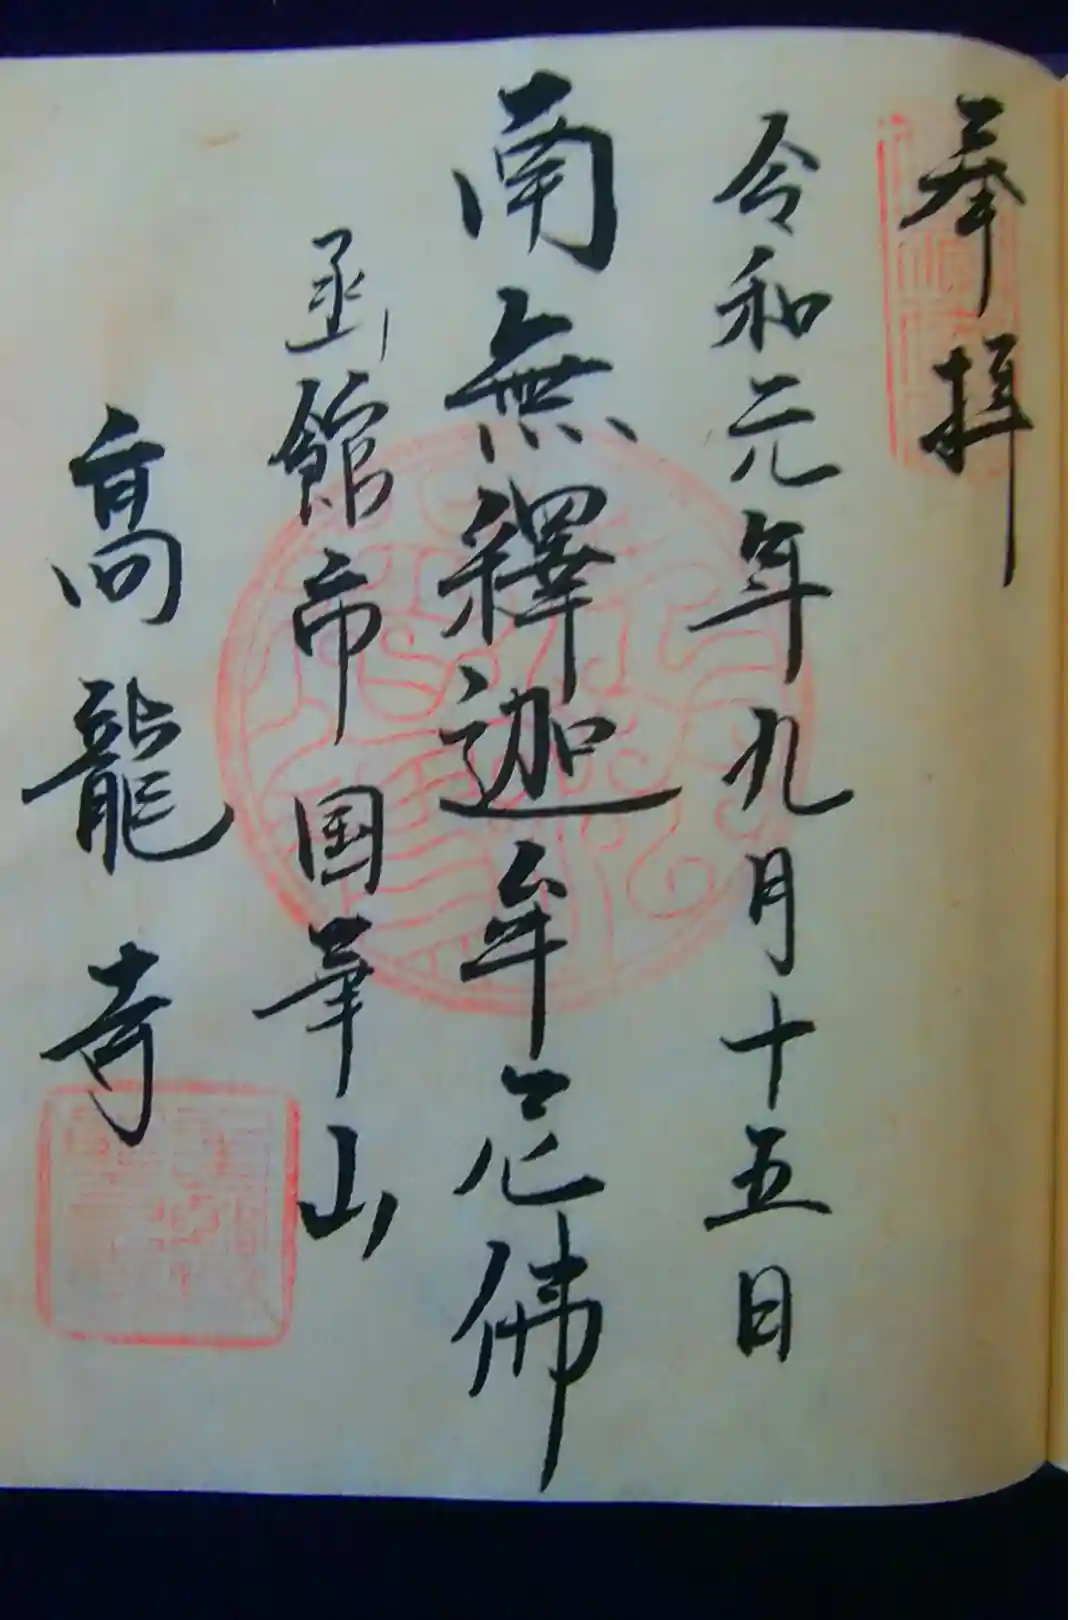 奉拝
令和元年九月十五日
南無釋迦牟尼佛
函館帝国華山
高龍寺